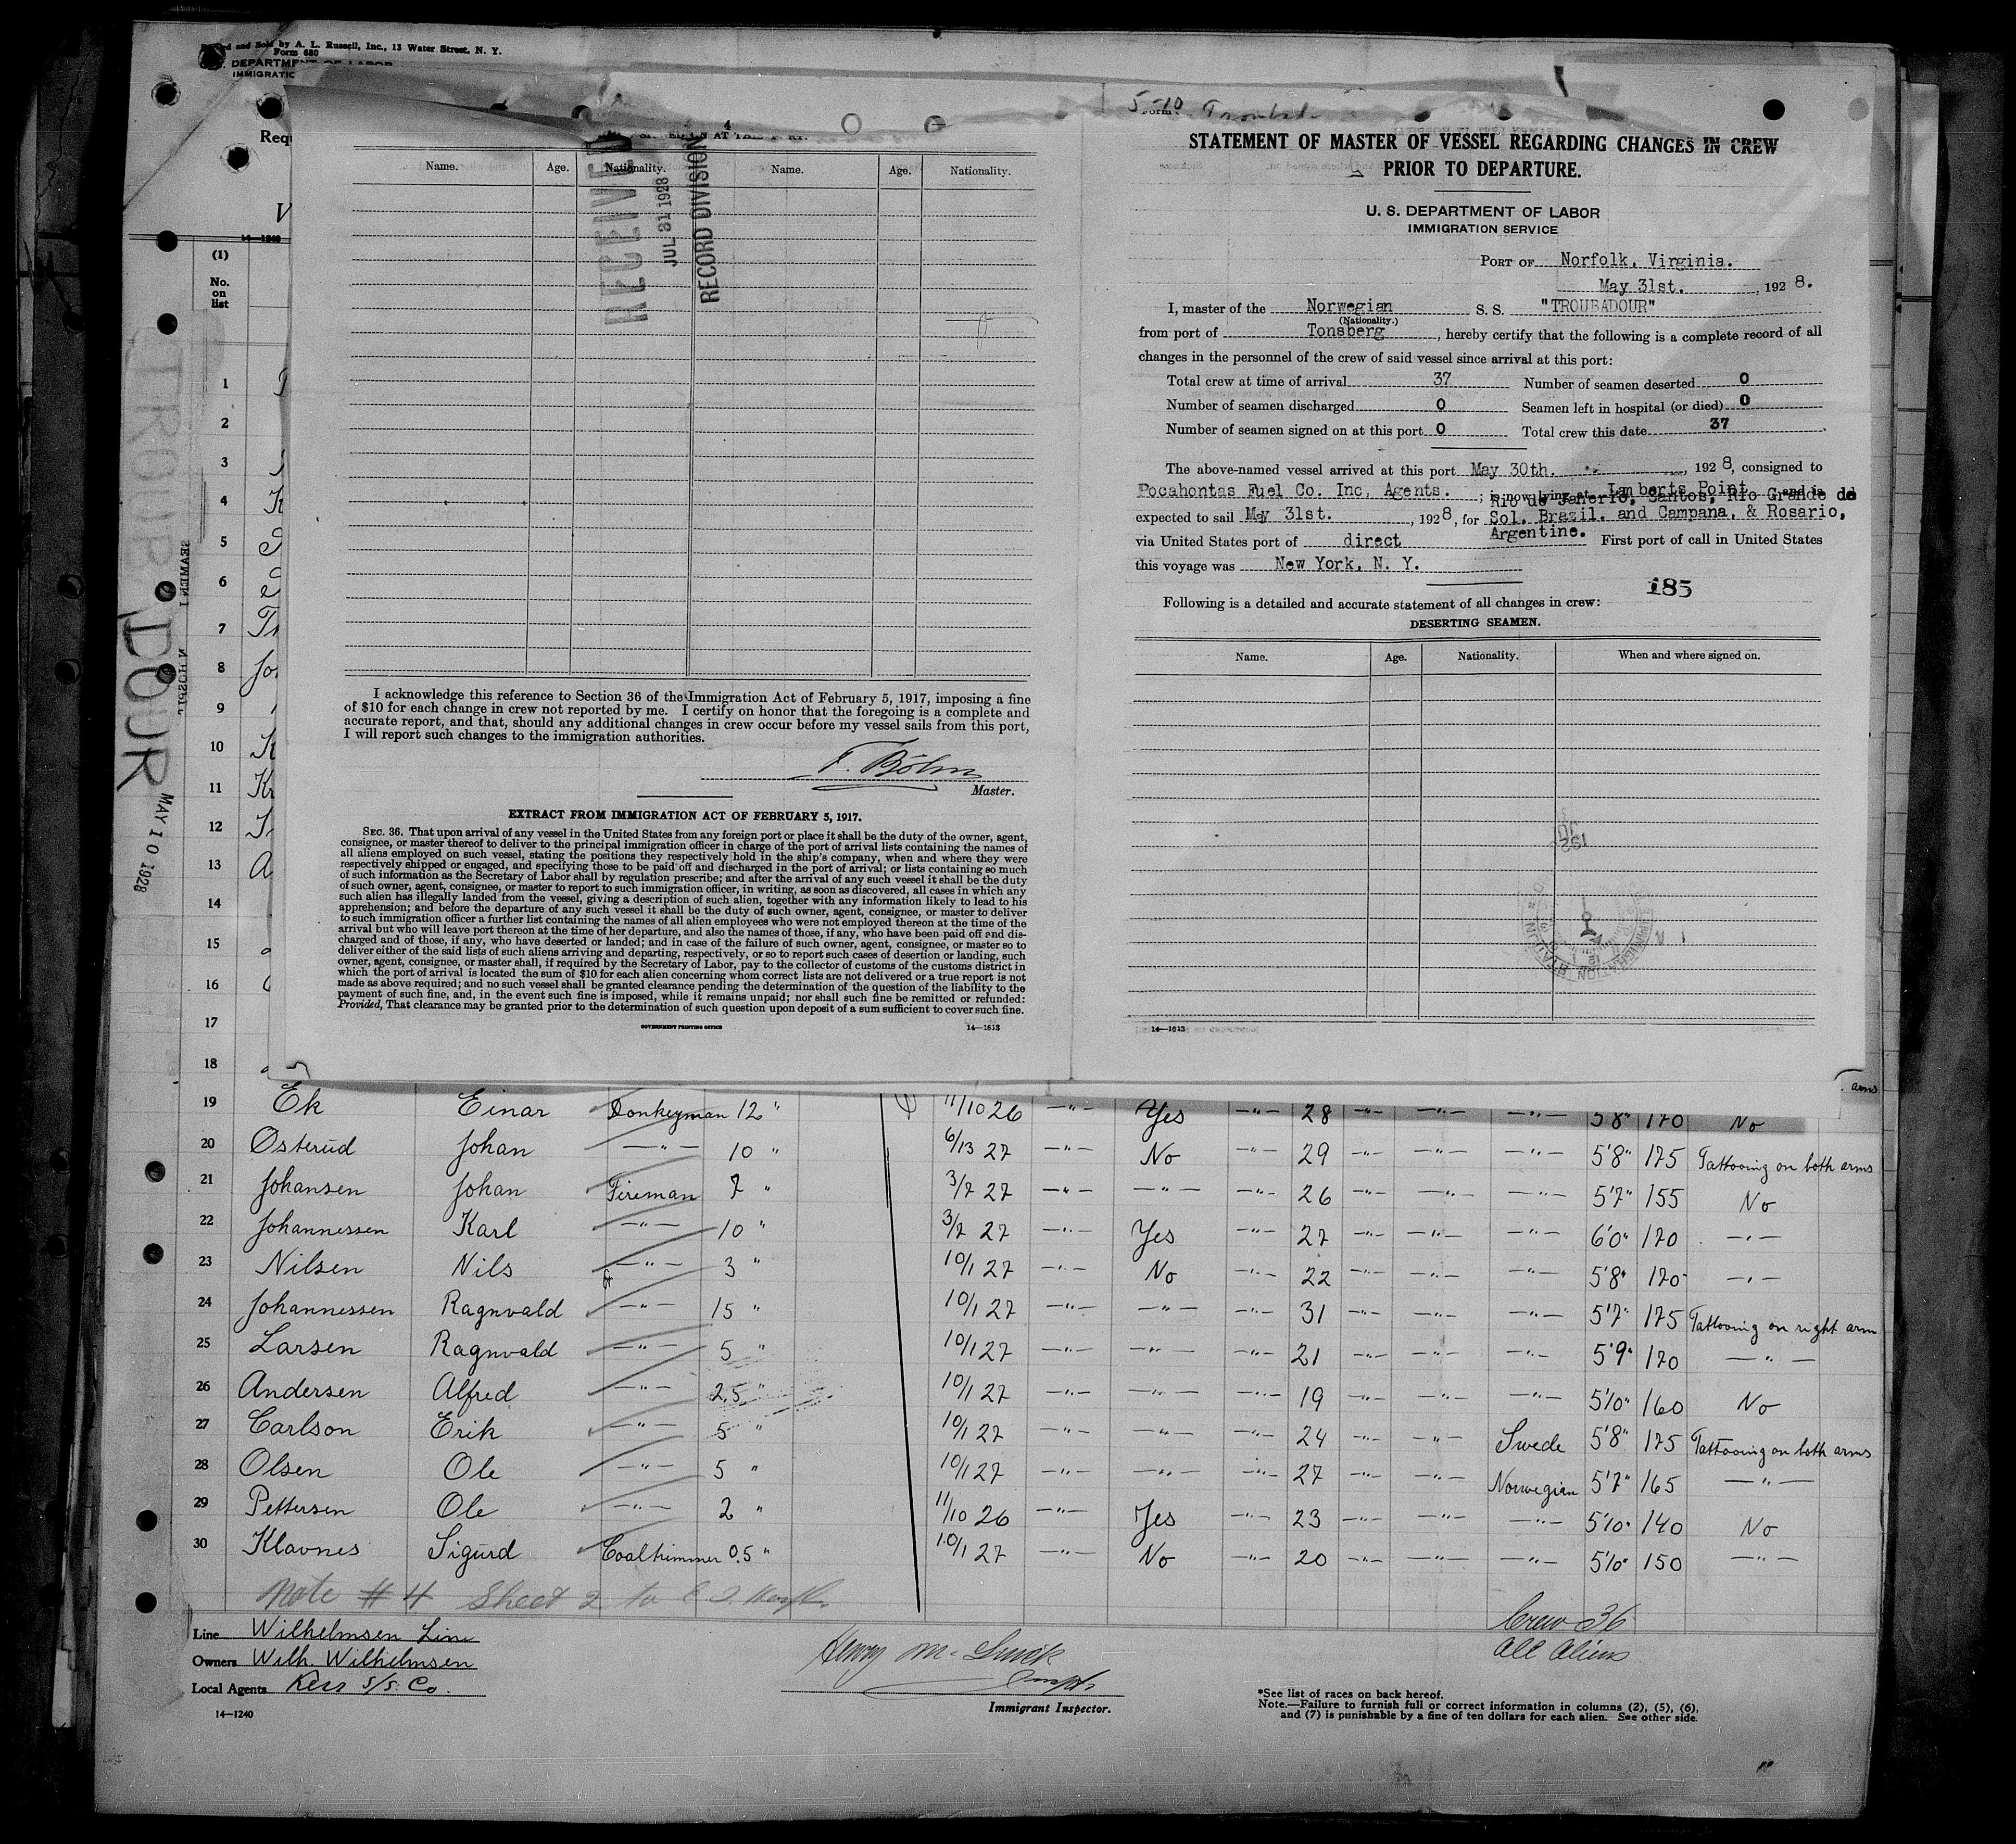 and Sold by A. L. Russell, Inc., 13 Water Street, N. Y.
Form 680
DEPARTMENT OF LABOR
IMMIGRATIC
Requ
V
14—1240
(1)
No.
on
list
TROUBADOUR
MAY 10 1928
4
AT THIS PORT.
Name. Age. Nationality. Name. Age. Nationality.
RECEIVED
JUL 31 1928
RECORD DIVISION
I acknowledge this reference to Section 36 of the Immigration Act of February 5, 1917, imposing a fine
of $10 for each change in crew not reported by me. I certify on honor that the foregoing is a complete and
accurate report, and that, should any additional changes in crew occur before my vessel sails from this port,
I will report such changes to the immigration authorities.
F. Böhm
Master.
EXTRACT FROM IMMIGRATION ACT OF FEBRUARY 5, 1917.
SEC. 36. That upon arrival of any vessel in the United States from any foreign port or place it shall be the duty of the owner, agent,
consignee, or master thereof to deliver to the principal immigration officer in charge of the port of arrival lists containing the names of
all aliens employed on such vessel, stating the positions they respectively hold in the ship's company, when and where they were
respectively shipped or engaged, and specifying those to be paid off and discharged in the port of arrival; or lists containing so much
of such information as the Secretary of Labor shall by regulation prescribe; and after the arrival of any such vessel it shall be the duty
of such owner, agent, consignee, or master to report to such immigration officer, in writing, as soon as discovered, all cases in which any
such alien has illegally landed from the vessel, giving a description of such alien, together with any information likely to lead to his
apprehension; and before the departure of any such vessel it shall be the duty of such owner, agent, consignee, or master to deliver
to such immigration officer a further list containing the names of all alien employees who were not employed thereon at the time of the
arrival but who will leave port thereon at the time of her departure, and also the names of those, if any, who have been paid off and dis-
charged and of those, if any, who have deserted or landed; and in case of the failure of such owner, agent, consignee, or master so to
deliver either of the said lists of such aliens arriving and departing, respectively, or so to report such cases of desertion or landing, such
owner, agent, consignee, or master shall, if required by the Secretary of Labor, pay to the collector of customs of the customs district in
which the port of arrival is located the sum of $10 for each alien concerning whom correct lists are not delivered or a true report is not
made as above required; and no such vessel shall be granted clearance pending the determination of the question of the liability to the
payment of such fine, and, in the event such fine is imposed, while it remains unpaid; nor shall such fine be remitted or refunded:
Provided, That clearance may be granted prior to the determination of such question upon deposit of a sum sufficient to cover such fine.
GOVERNMENT PRINTING OFFICE 14—1613
5-10
Form
STATEMENT OF MASTER OF VESSEL REGARDING CHANGES IN CREW
PRIOR TO DEPARTURE.
U. S. DEPARTMENT OF LABOR
IMMIGRATION SERVICE
PORT OF Norfolk, Virginia.
May 31st. , 1928.
I, master of the Norwegian S. S. "TROUBADOUR"
(Nationality.)
from port of Tonsberg , hereby certify that the following is a complete record of all
changes in the personnel of the crew of said vessel since arrival at this port:
Total crew at time of arrival 37 Number of seamen deserted 0
Number of seamen discharged 0 Seamen left in hospital (or died) 0
Number of seamen signed on at this port 0 Total crew this date 37
The above-named vessel arrived at this port May 30th. , 1928, consigned to
Pocahontas Fuel Co. Inc, Agents. ; is now lying at Lamberts Point and is
Rio de Janerio, Santos, Rio Grande do
expected to sail May 31st. , 1928, for Sol, Brazil. and Campana, & Rosario,
Argentine.
via United States port of direct First port of call in United States
this voyage was New York, N. Y.
185
Following is a detailed and accurate statement of all changes in crew:
DESERTING SEAMEN.
Name. Age. Nationality. When and where signed on.
14—1613
1
2
3
4 K
5
6
7 Tr
8 Jo
9
10 K
11 Kr
12
13 A
14
15
16
17
18
arms
19 Ek Einar Donkeyman 12 " 11/10 26 —"— Yes —"— 28 —"— —"— —"— 5'8" 170 No
20 Osterud Johan —"— 10 " 6/13 27 —"— No —"— 29 —"— —"— —"— 5'8" 175 Tattooing on both arms
21 Johansen Johan Fireman 7 " 3/7 27 —"— —"— —"— 26 —"— —"— —"— 5'7" 155 No
22 Johannessen Karl —"— 10 " 3/7 27 —"— Yes —"— 27 —"— —"— —"— 6'0" 170 —"—
23 Nilsen Nils —"— 3 " 10/1 27 —"— No —"— 22 —"— —"— —"— 5'8" 170 —"—
24 Johannessen Ragnvald —"— 15 " 10/1 27 —"— —"— —"— 31 —"— —"— —"— 5'7" 175 Tattooing on right arm
25 Larsen Ragnvald —"— 5 " 10/1 27 —"— —"— —"— 21 —"— —"— —"— 5'9" 170 —"—
26 Andersen Alfred —"— 2,5 " 10/1 27 —"— —"— —"— 19 —"— —"— —"— 5'10" 160 No
27 Carlson Erik —"— 5 " 10/1 27 —"— —"— —"— 24 —"— —"— Swede 5'8" 175 Tattooing on both arms
28 Olsen Ole —"— 5 " 10/1 27 —"— —"— —"— 27 —"— —"— Norwegian 5'7" 165 —"—
29 Pettersen Ole —"— 2 " 11/10 26 —"— Yes —"— 23 —"— —"— —"— 5'10" 140 No
30 Klavnes Sigurd Coaltrimmer 0.5 " 10/1 27 —"— No —"— 20 —"— —"— —"— 5'10" 150 —"—
Note # 4 Sheet 2 to
Crew 36
all aliens
Line Wilhelmsen Line
Owners Wilh. Wilhelmsen
Local Agents Kerr S/S. Co.
14—1240
Immigrant Inspector.
*See list of races on back hereof.
Note.—Failure to furnish full or correct information in columns (2), (5), (6),
and (7) is punishable by a fine of ten dollars for each alien. See other side.